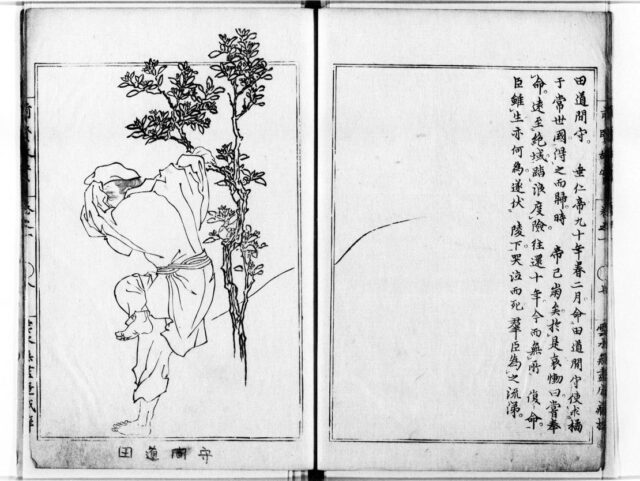 田道間守。 垂仁帝九十年春二月命田道間守使求橘
于常世國得之而歸時 帝已崩矣於是哀慟曰嘗奉
命遠至絶域蹈浪度險往還十年今而無所 復命
臣雖生亦何為遂伏 陵下哭泣而死羣臣為之流涕。
田道間守